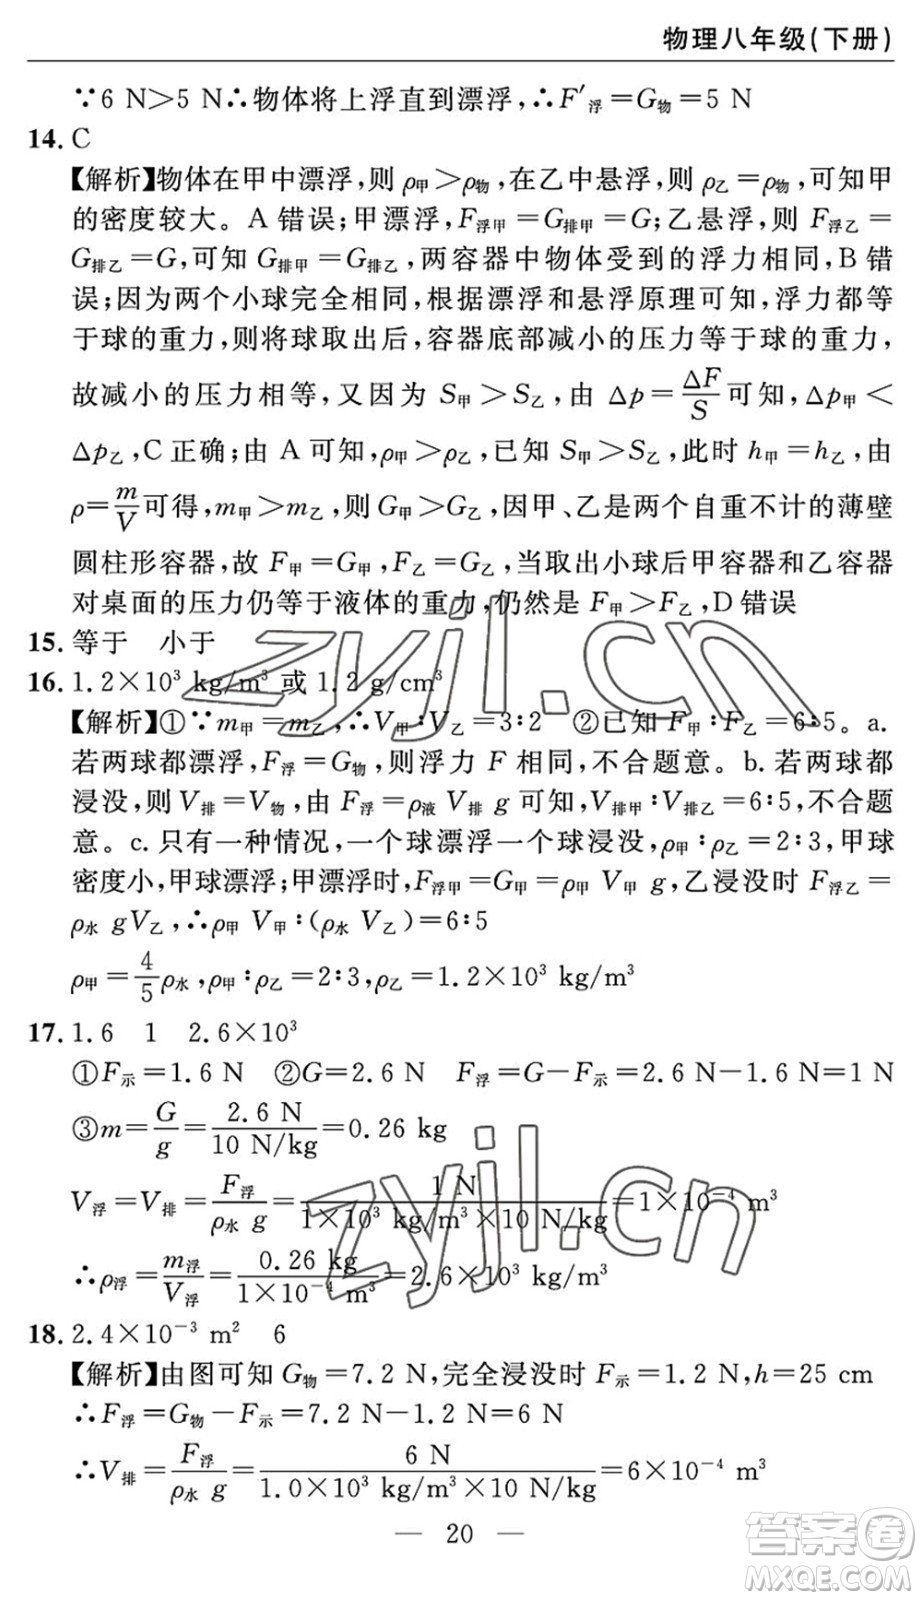 物理八年级(下册)
∵6 N＞5 N∴物体将上浮直到漂浮,∴F′浮=G物=5 N
14. C
【解析】物体在甲中漂浮,则 ρ甲＞ρ物,在乙中悬浮,则 ρ乙=ρ物,可知甲
的密度较大。A 错误;甲漂浮,F浮甲=G排甲=G;乙悬浮,则 F浮乙=
G排乙=G,可知 G排甲=G排乙,两容器中物体受到的浮力相同,B 错
误;因为两个小球完全相同,根据漂浮和悬浮原理可知,浮力都等
于球的重力,则将球取出后,容器底部减小的压力等于球的重力,
故减小的压力相等,又因为 S甲＞S乙,由 Δp=ΔF/S可知,Δp甲＜
Δp乙,C 正确;由 A 可知,ρ甲＞ρ乙,已知 S甲＞S乙,此时 h甲=h乙,由
ρ=m/V可得,m甲＞m乙,则 G甲＞G乙,因甲、乙是两个自重不计的薄壁
圆柱形容器,故 F甲=G甲,F乙=G乙,当取出小球后甲容器和乙容器
对桌面的压力仍等于液体的重力,仍然是 F甲＞F乙,D 错误
15. 等于 小于
16. 1.2×10³ kg/m³ 或 1.2 g/cm³
【解析】①∵m甲=m乙,∴V甲∶V乙=3∶2 ②已知 F甲∶F乙=6∶5。a.
若两球都漂浮,F浮=G物,则浮力 F 相同,不合题意。b. 若两球都
浸没,则 V排=V物,由 F浮=ρ液 V排 g 可知,V排甲∶V排乙=6∶5,不合题
意。c. 只有一种情况,一个球漂浮一个球浸没,ρ甲∶ρ乙=2∶3,甲球
密度小,甲球漂浮;甲漂浮时,F浮甲=G甲=ρ甲 V甲 g,乙浸没时 F浮乙=
ρ水 gV乙,∴ρ甲 V甲∶(ρ水 V乙)=6∶5
ρ甲=4/5ρ水,ρ甲∶ρ乙=2∶3,ρ乙=1.2×10³ kg/m³
17. 1.6 1 2.6×10³
①F示=1.6 N ②G=2.6 N F浮=G−F示=2.6 N−1.6 N=1 N
③m=G/g=2.6 N/10 N/kg=0.26 kg
V浮=V排=F浮/ρ水 g=1 N/1×10³ kg/m³×10 N/kg=1×10⁻⁴ m³
∴ρ浮=m浮/V浮=0.26 kg/1×10⁻⁴ m³=2.6×10³ kg/m³
18. 2.4×10⁻³ m² 6
【解析】由图可知 G物=7.2 N,完全浸没时 F示=1.2 N,h=25 cm
∴F浮=G物−F示=7.2 N−1.2 N=6 N
∴V排=F浮/ρ水 g=6 N/1.0×10³ kg/m³×10 N/kg=6×10⁻⁴ m³
— 20 —
zyjl.cn
zyjl.cn
答案圈
MXQE.COM